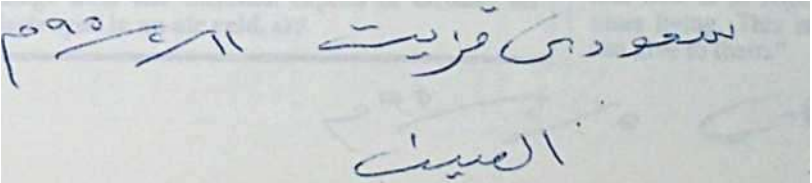 سعودى قزيت ١١/٥/٩٥م
الصين